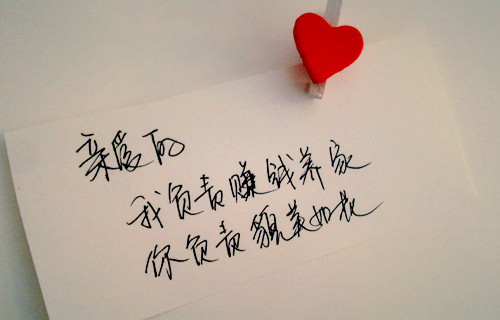 亲爱的
我负责赚钱养家
你负责貌美如花